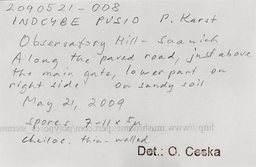 2090521-008
INOCYBE PUSIO P. Karst
Observatory Hill - Saanich
Along the paved road, just above
the main gate, lower part on
right side. On sandy soil
May 21, 2009
spores 7-11 x 5µ
cheiloc. thin-walled
Det.: O. Ceska